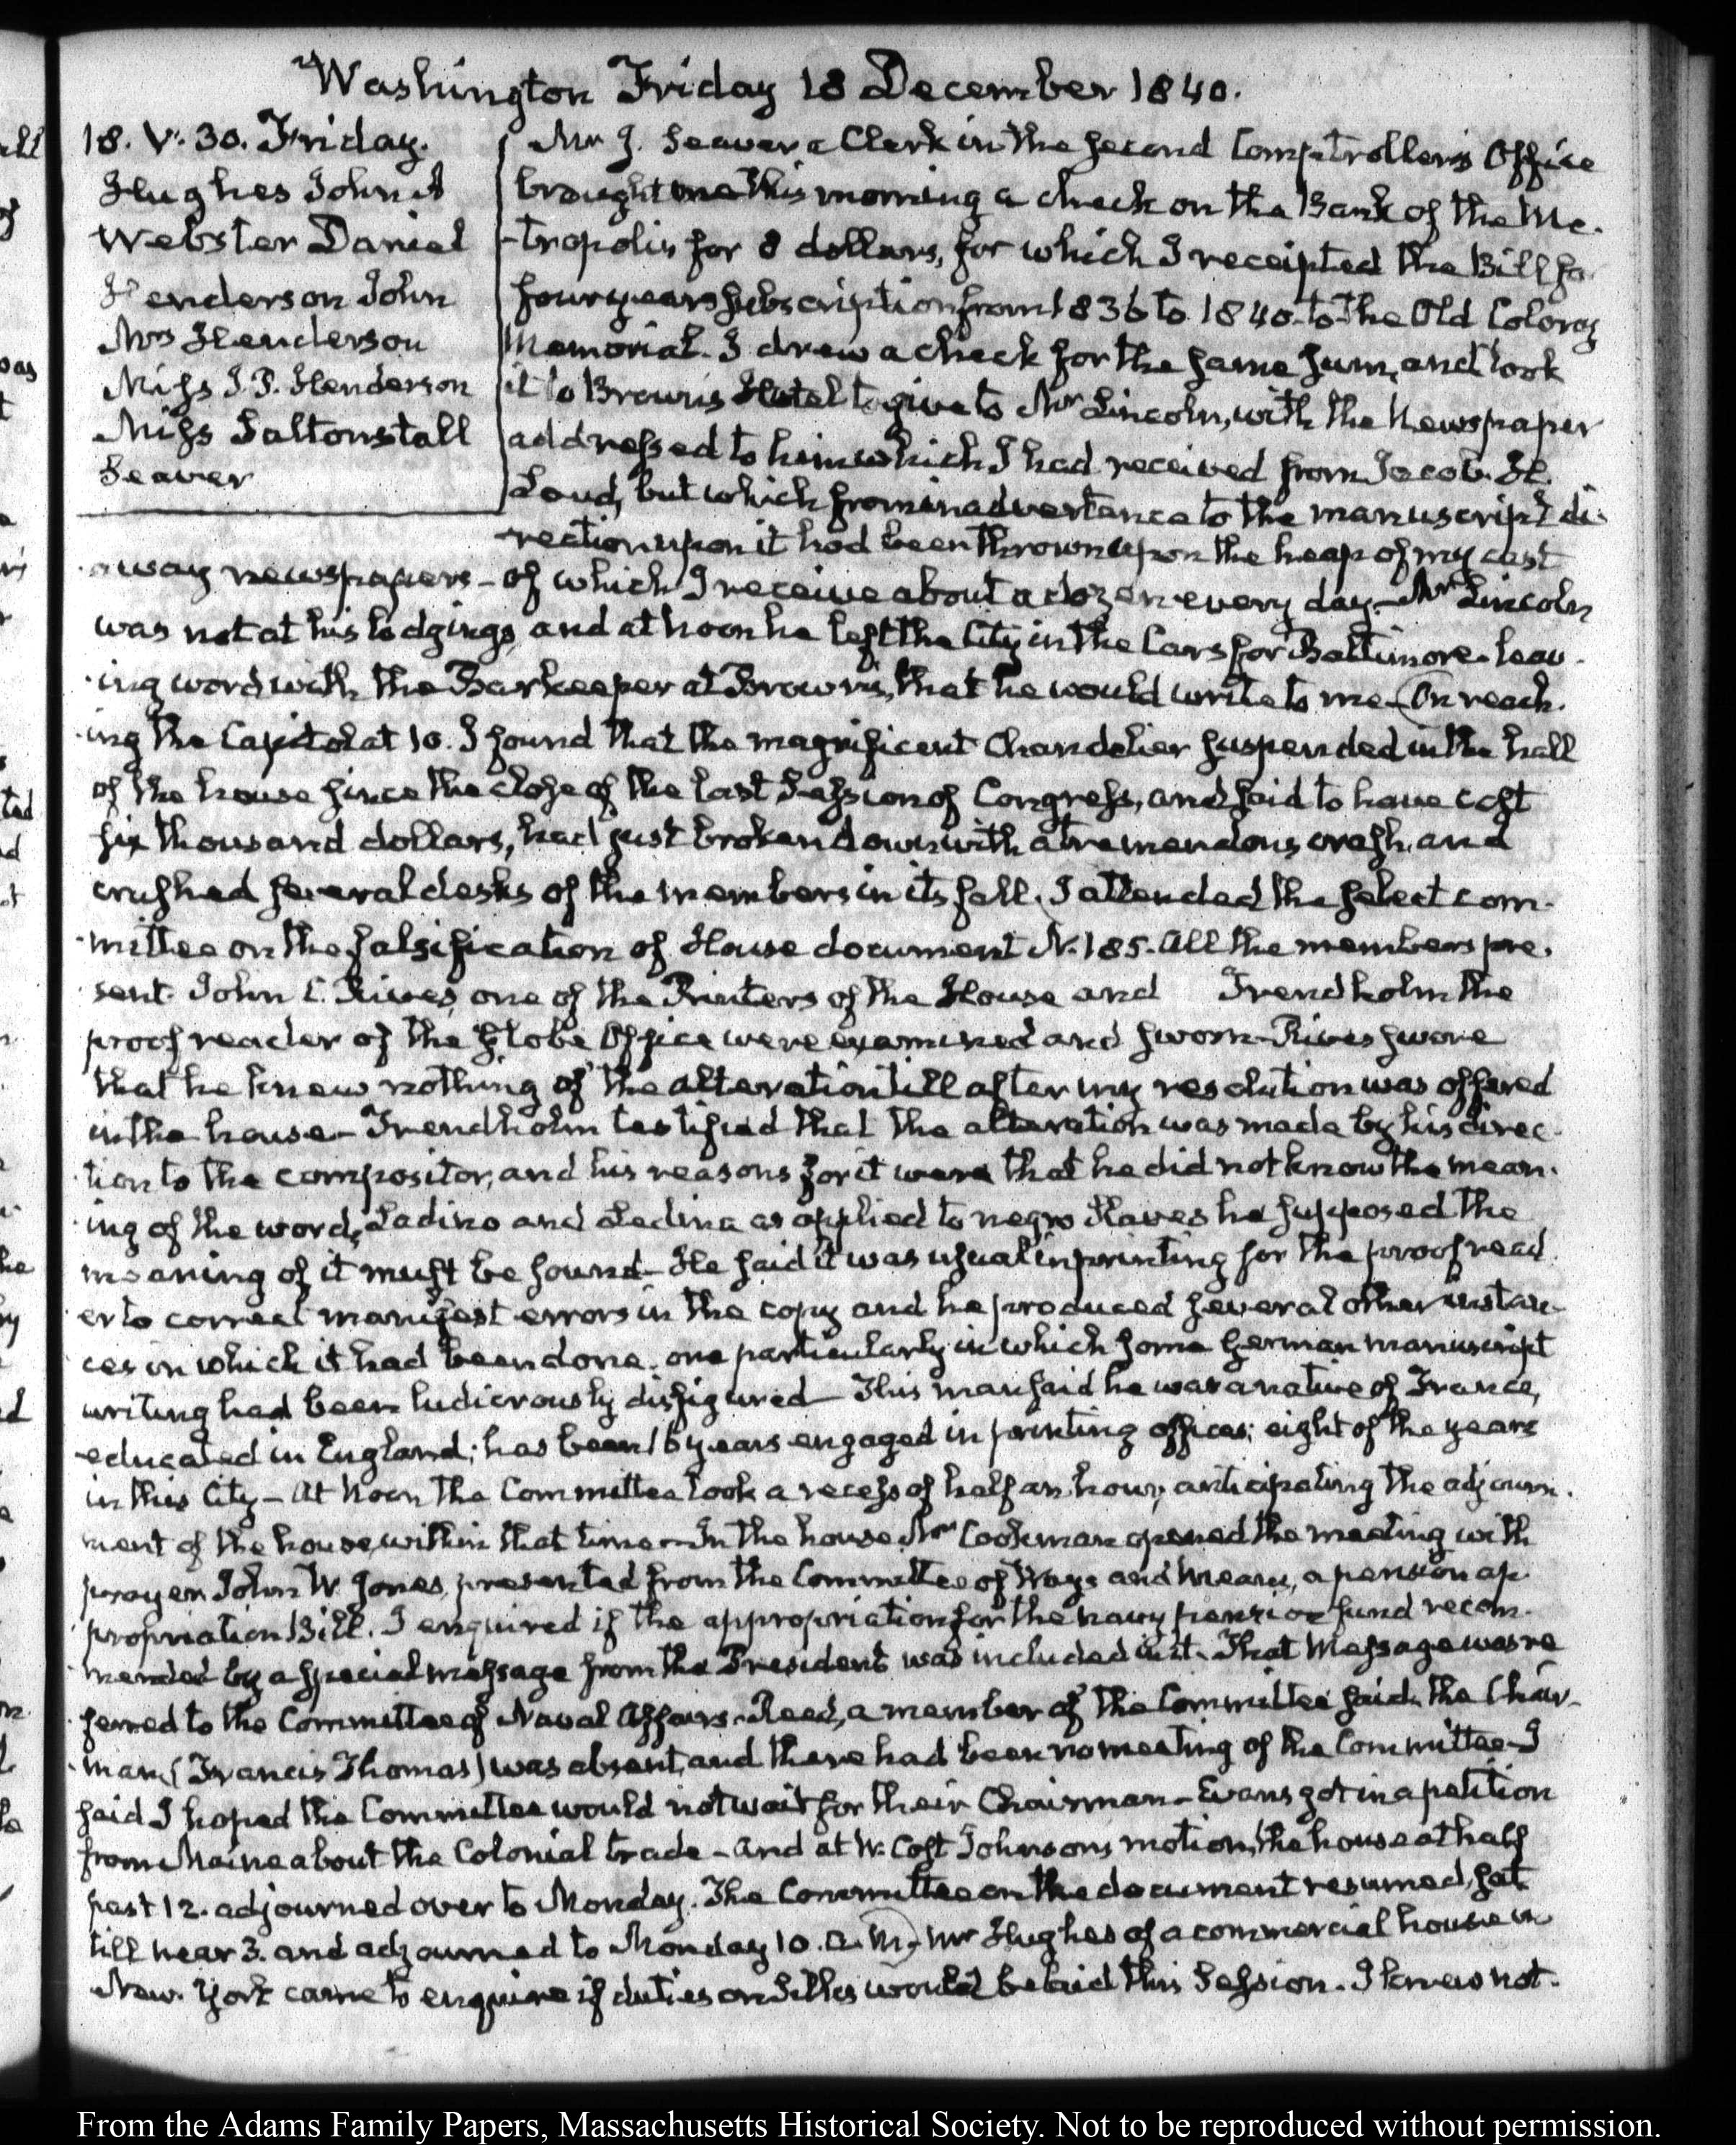 Washington Friday 18 December 1840.
18. V. 30. Friday.
Hughes John A
Webster Daniel
Henderson John
Mrs Henderson
Miss J. P. Henderson
Miss Saltonstall
Seaver
Mr J. Seaver a Clerk in the second Comptroller's Office
brought me this morning a check on the Bank of the Me-
-tropolis for 8 dollars, for which I receipted the Bill for
four years subscription from 1836 to 1840 to the Old Colony
Memorial. I drew a check for the same sum, and took
it to Brown's Hotel to give to Mr Lincoln, with the Newspaper
addressed to him which I had received from Jacob. H.
Loud, but which from inadvertence to the manuscript di-
-rection upon it had been thrown upon the heap of my cast
away newspapers - of which I receive about a dozen every day - Mr Lincoln
was not at his lodgings, and at noon he left the City in the Cars for Baltimore - leav-
-ing word with the Barkeeper at Brown's, that he would write to me - On reach-
-ing the Capitol at 10. I found that the magnificent Chandelier suspended in the hall
of the house since the close of the last Session of Congress, and said to have cost
six thousand dollars, had just broken down with a tremendous crash, and
crushed several desks of the members in its fall. I attended the select com-
-mittee on the falsification of House document N. 185. All the members pre-
sent. John C. Rives, one of the Printers of the House and Trendholm the
proof reader of the Globe Office were examined and sworn - Rives swore
that he knew nothing of the alteration till after my resolution was offered
in the house - Trendholm testified that the alteration was made by his direc-
tion to the compositor, and his reasons for it were that he did not know the mean-
-ing of the words, Ladino and Ladina as applied to negro slaves he supposed the
meaning of it must be sound - He said it was usual in printing for the proof read-
er to correct manifest errors in the copy and he produced several other instan-
ces in which it had been done. one particularly in which some German manuscript
writing had been ludicrously disfigured - This man said he was a native of France,
educated in England; has been 16 years engaged in printing offices; eight of the years
in this City - At Noon the Committee took a recess of half an hour, anticipating the adjourn-
ment of the house within that time - In the house Mr Cookman opened the meeting with
prayer. John W. Jones, presented from the Committee of Ways and Means, a pension ap-
propriation Bill. I enquired if the appropriation for the navy pension fund recom-
mended by a special message from the President was included in it - That Message was re
ferred to the Committee of Naval Affairs - Reed, a member of the Committee said, the Chair-
man (Francis Thomas) was absent, and there had been no meeting of the Committee - I
said I hoped the Committee would not wait for their Chairman - Evans got in a petition
from Maine about the Colonial trade - and at W. Cost Johnsons motion, the house at half
past 12. adjourned over to Monday. The Committee on the document resumed, sat
till near 3. and adjourned to Monday 10. A.M. - Mr Hughes of a commercial house in
New York came to enquire if duties on Silks would be laid this Session - I knew not.
From the Adams Family Papers, Massachusetts Historical Society. Not to be reproduced without permission.